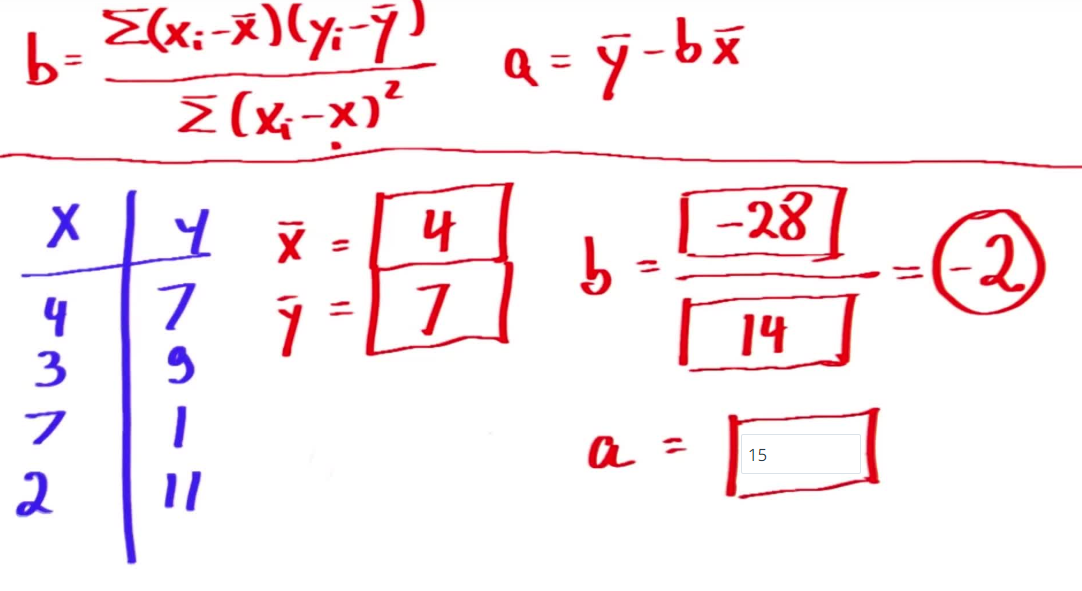 b = Σ(xᵢ-x̄)(yᵢ-ȳ) / Σ(xᵢ-x)² a = ȳ - b x̄
x y
4 7
3 9
7 1
2 11
x̄ = 4
ȳ = 7
b = -28 / 14 = -2
a = 15